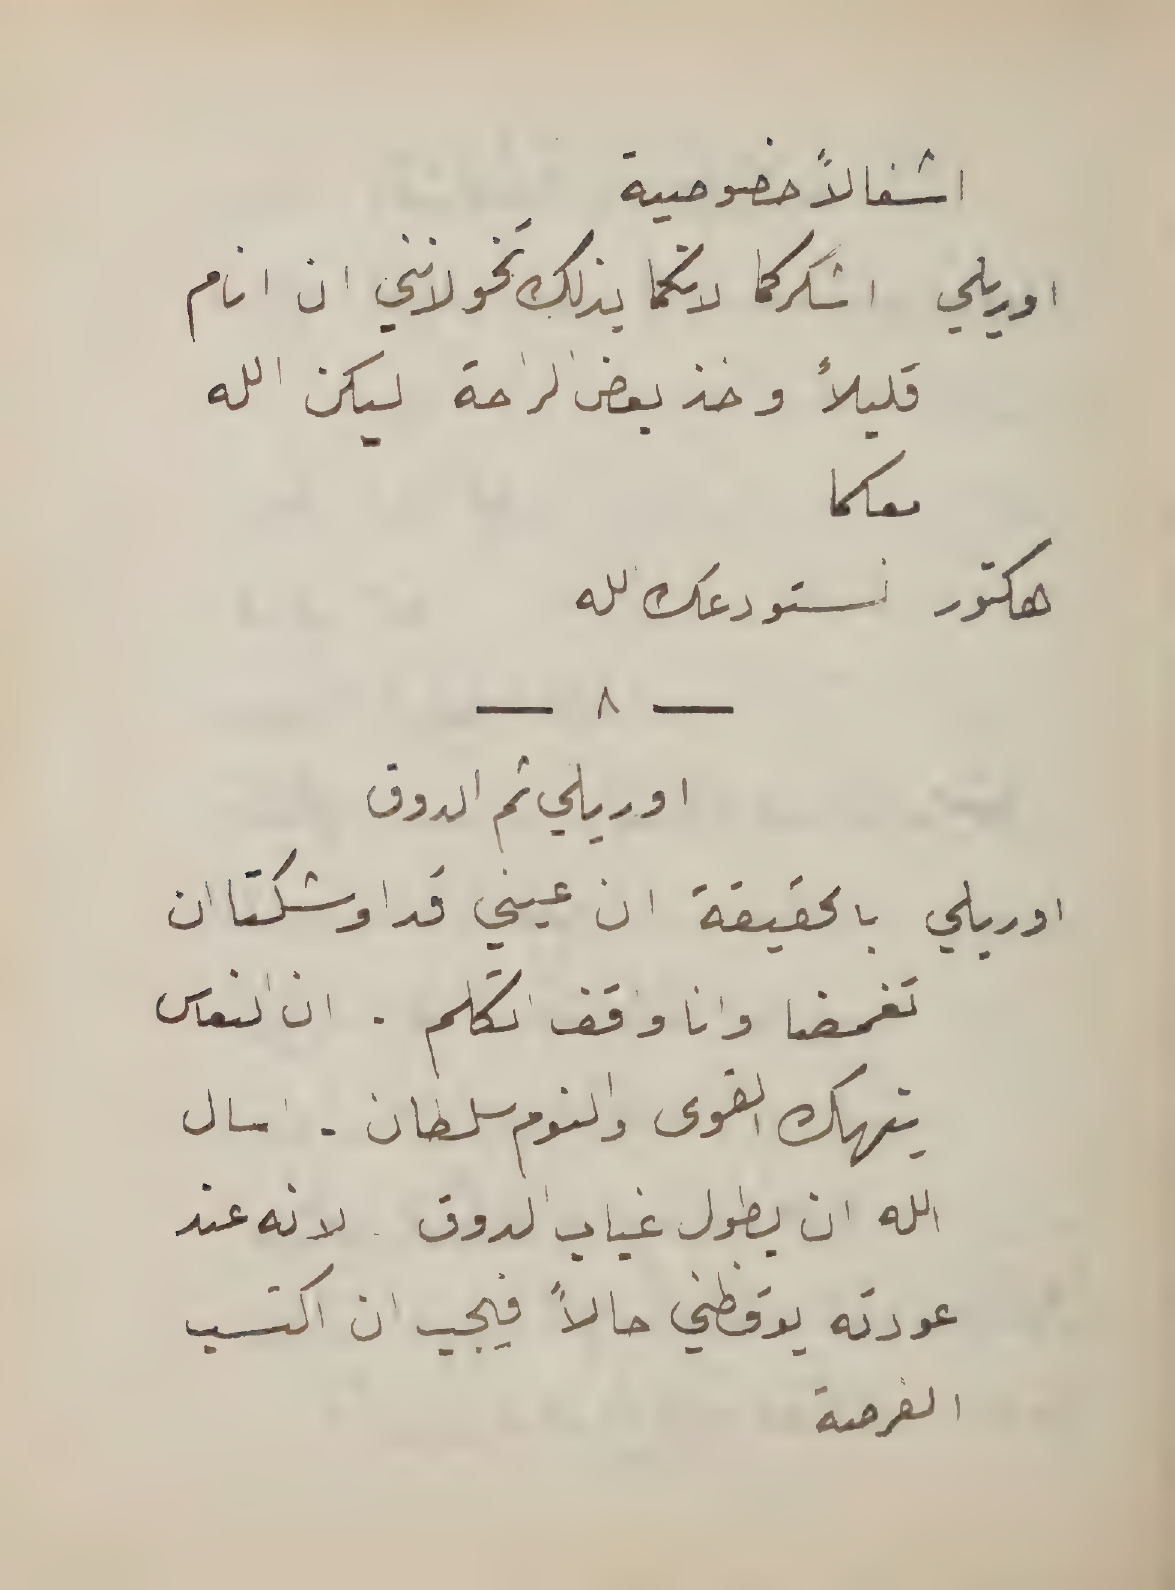 اشغالاً خصوصية
اوريلي اشكركما لانكما بذلك تخولانني ان انام
قليلاً وخذ بعض الراحة ليكن الله
معكما
هكتور نستودعك لله
— ٨ —
اوريلي ثم الدوق
اوريلي بالحقيقة ان عيني قد اوشكتا ان
تغمضا وانا واقف اتكلم . ان النعاس
ينهك القوى والنوم سلطان . اسال
الله ان يطول غياب الدوق . لانه عند
عودته يوقظني حالاً فيجب ان اكتسب
الفرصة